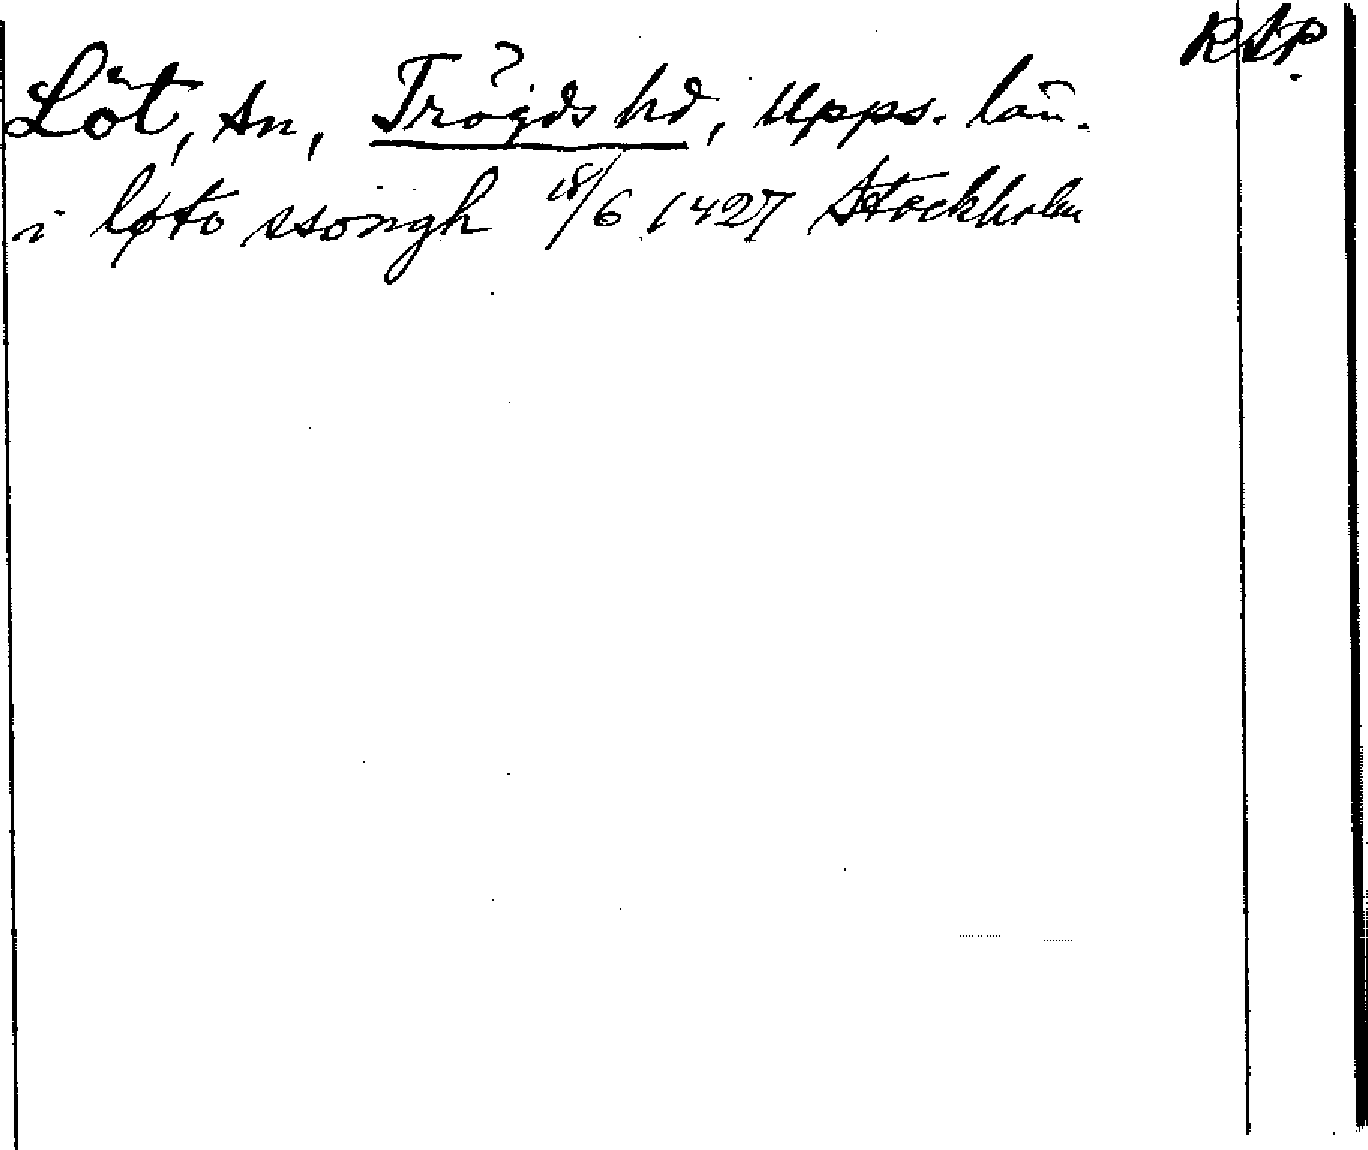 RAP.
Löt, sn, Trögds hd, Upps. län.
i løto ssongh 18/6 1427 Stockholm